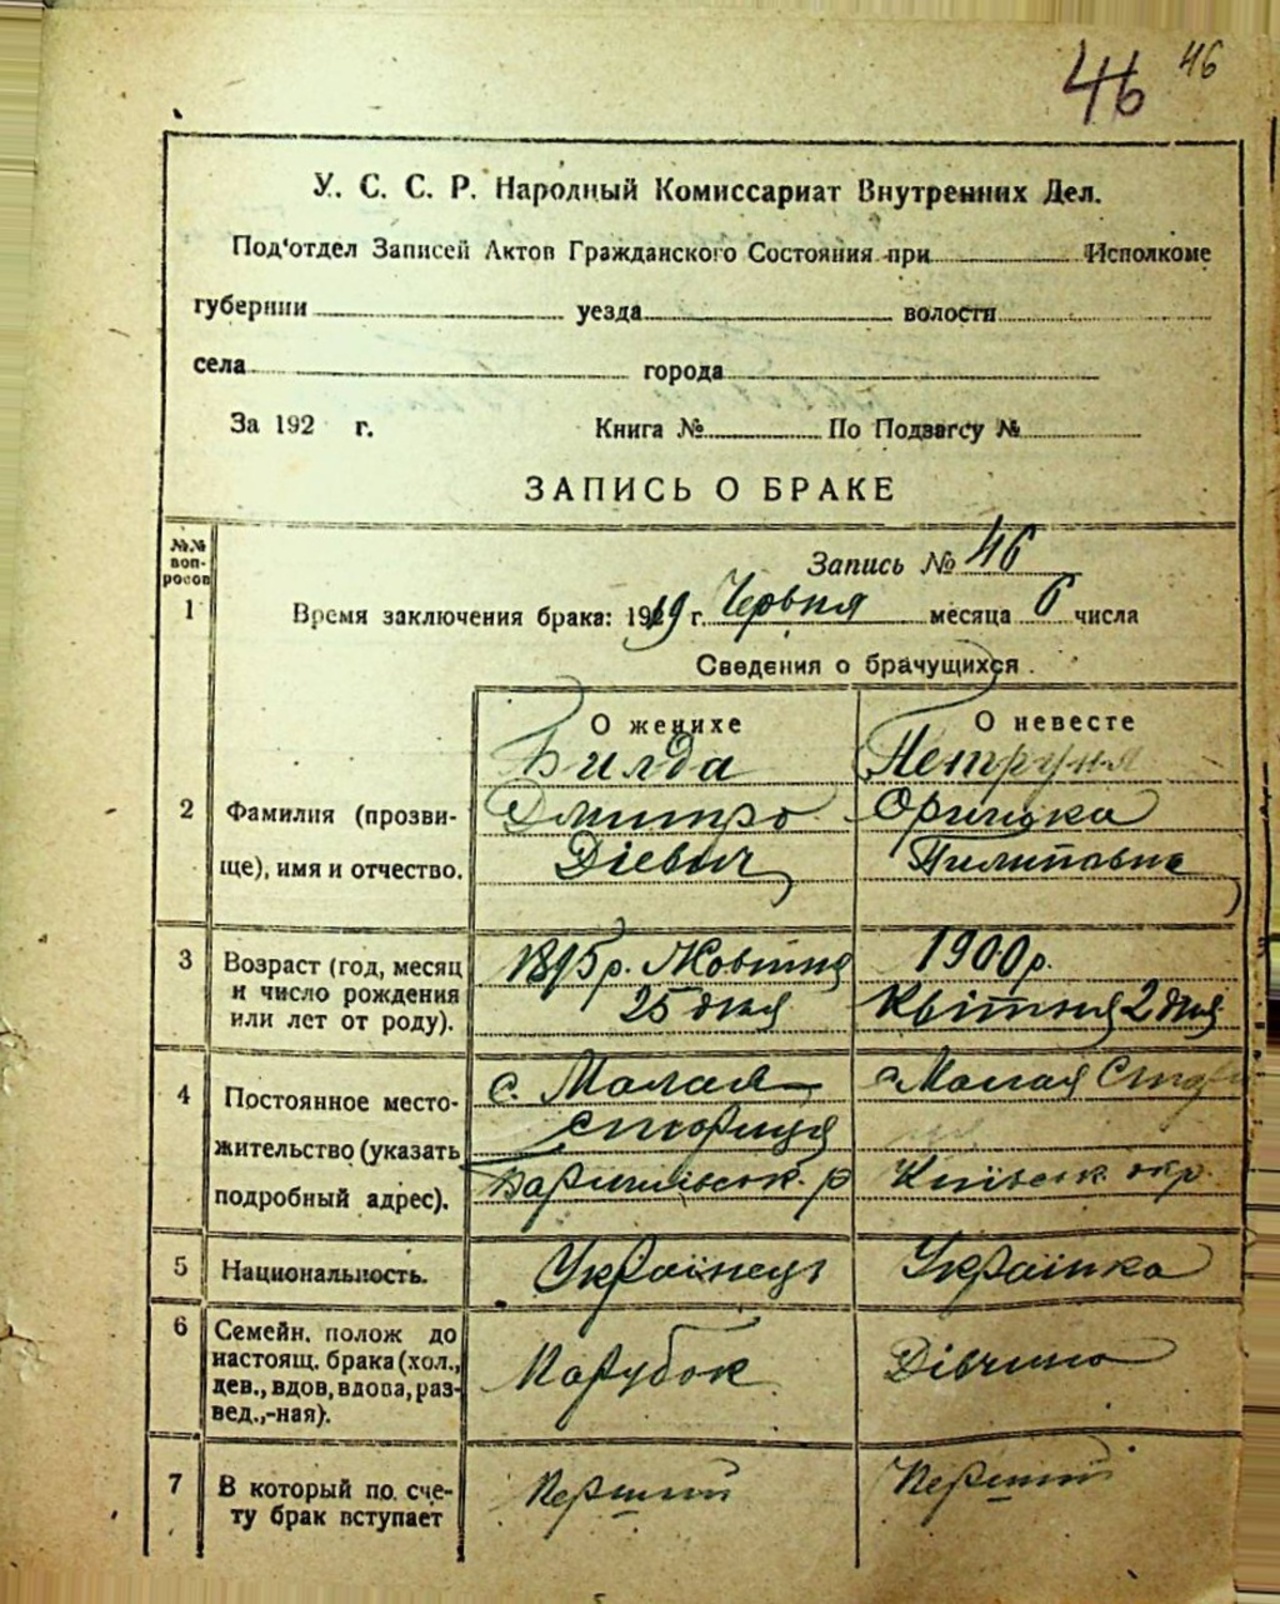 46 46
У. С. С. Р. Народный Комиссариат Внутренних Дел.
Под'отдел Записей Актов Гражданского Состояния при Исполкоме
губернии уезда волости
села города
За 192 г. Книга № По Подзагсу №
ЗАПИСЬ О БРАКЕ
№№ вопросов
Запись № 46
1 Время заключения брака: 1919 г. Червня месяца 6 числа
Сведения о брачущихся.
О женихе О невесте
Билда Петруня
2 Фамилия (прозви- Дмитро Оришка
ще), имя и отчество. Дієвич Пилиповна
3 Возраст (год, месяц 1895 р. Жовтня 1900 р.
и число рождения 25 дня Квітня 2 дня
или лет от роду).
4 Постоянное место- с. Малая с. Малая
жительство (указать Стариця
подробный адрес). р Київськ. окр.
5 Национальность. Українець Українка
6 Семейн. полож до
настоящ. брака (хол., Парубок Дівчина
дев., вдов, вдова, раз-
вед.,-ная).
7 В который по сче- Перший Перший
ту брак вступает